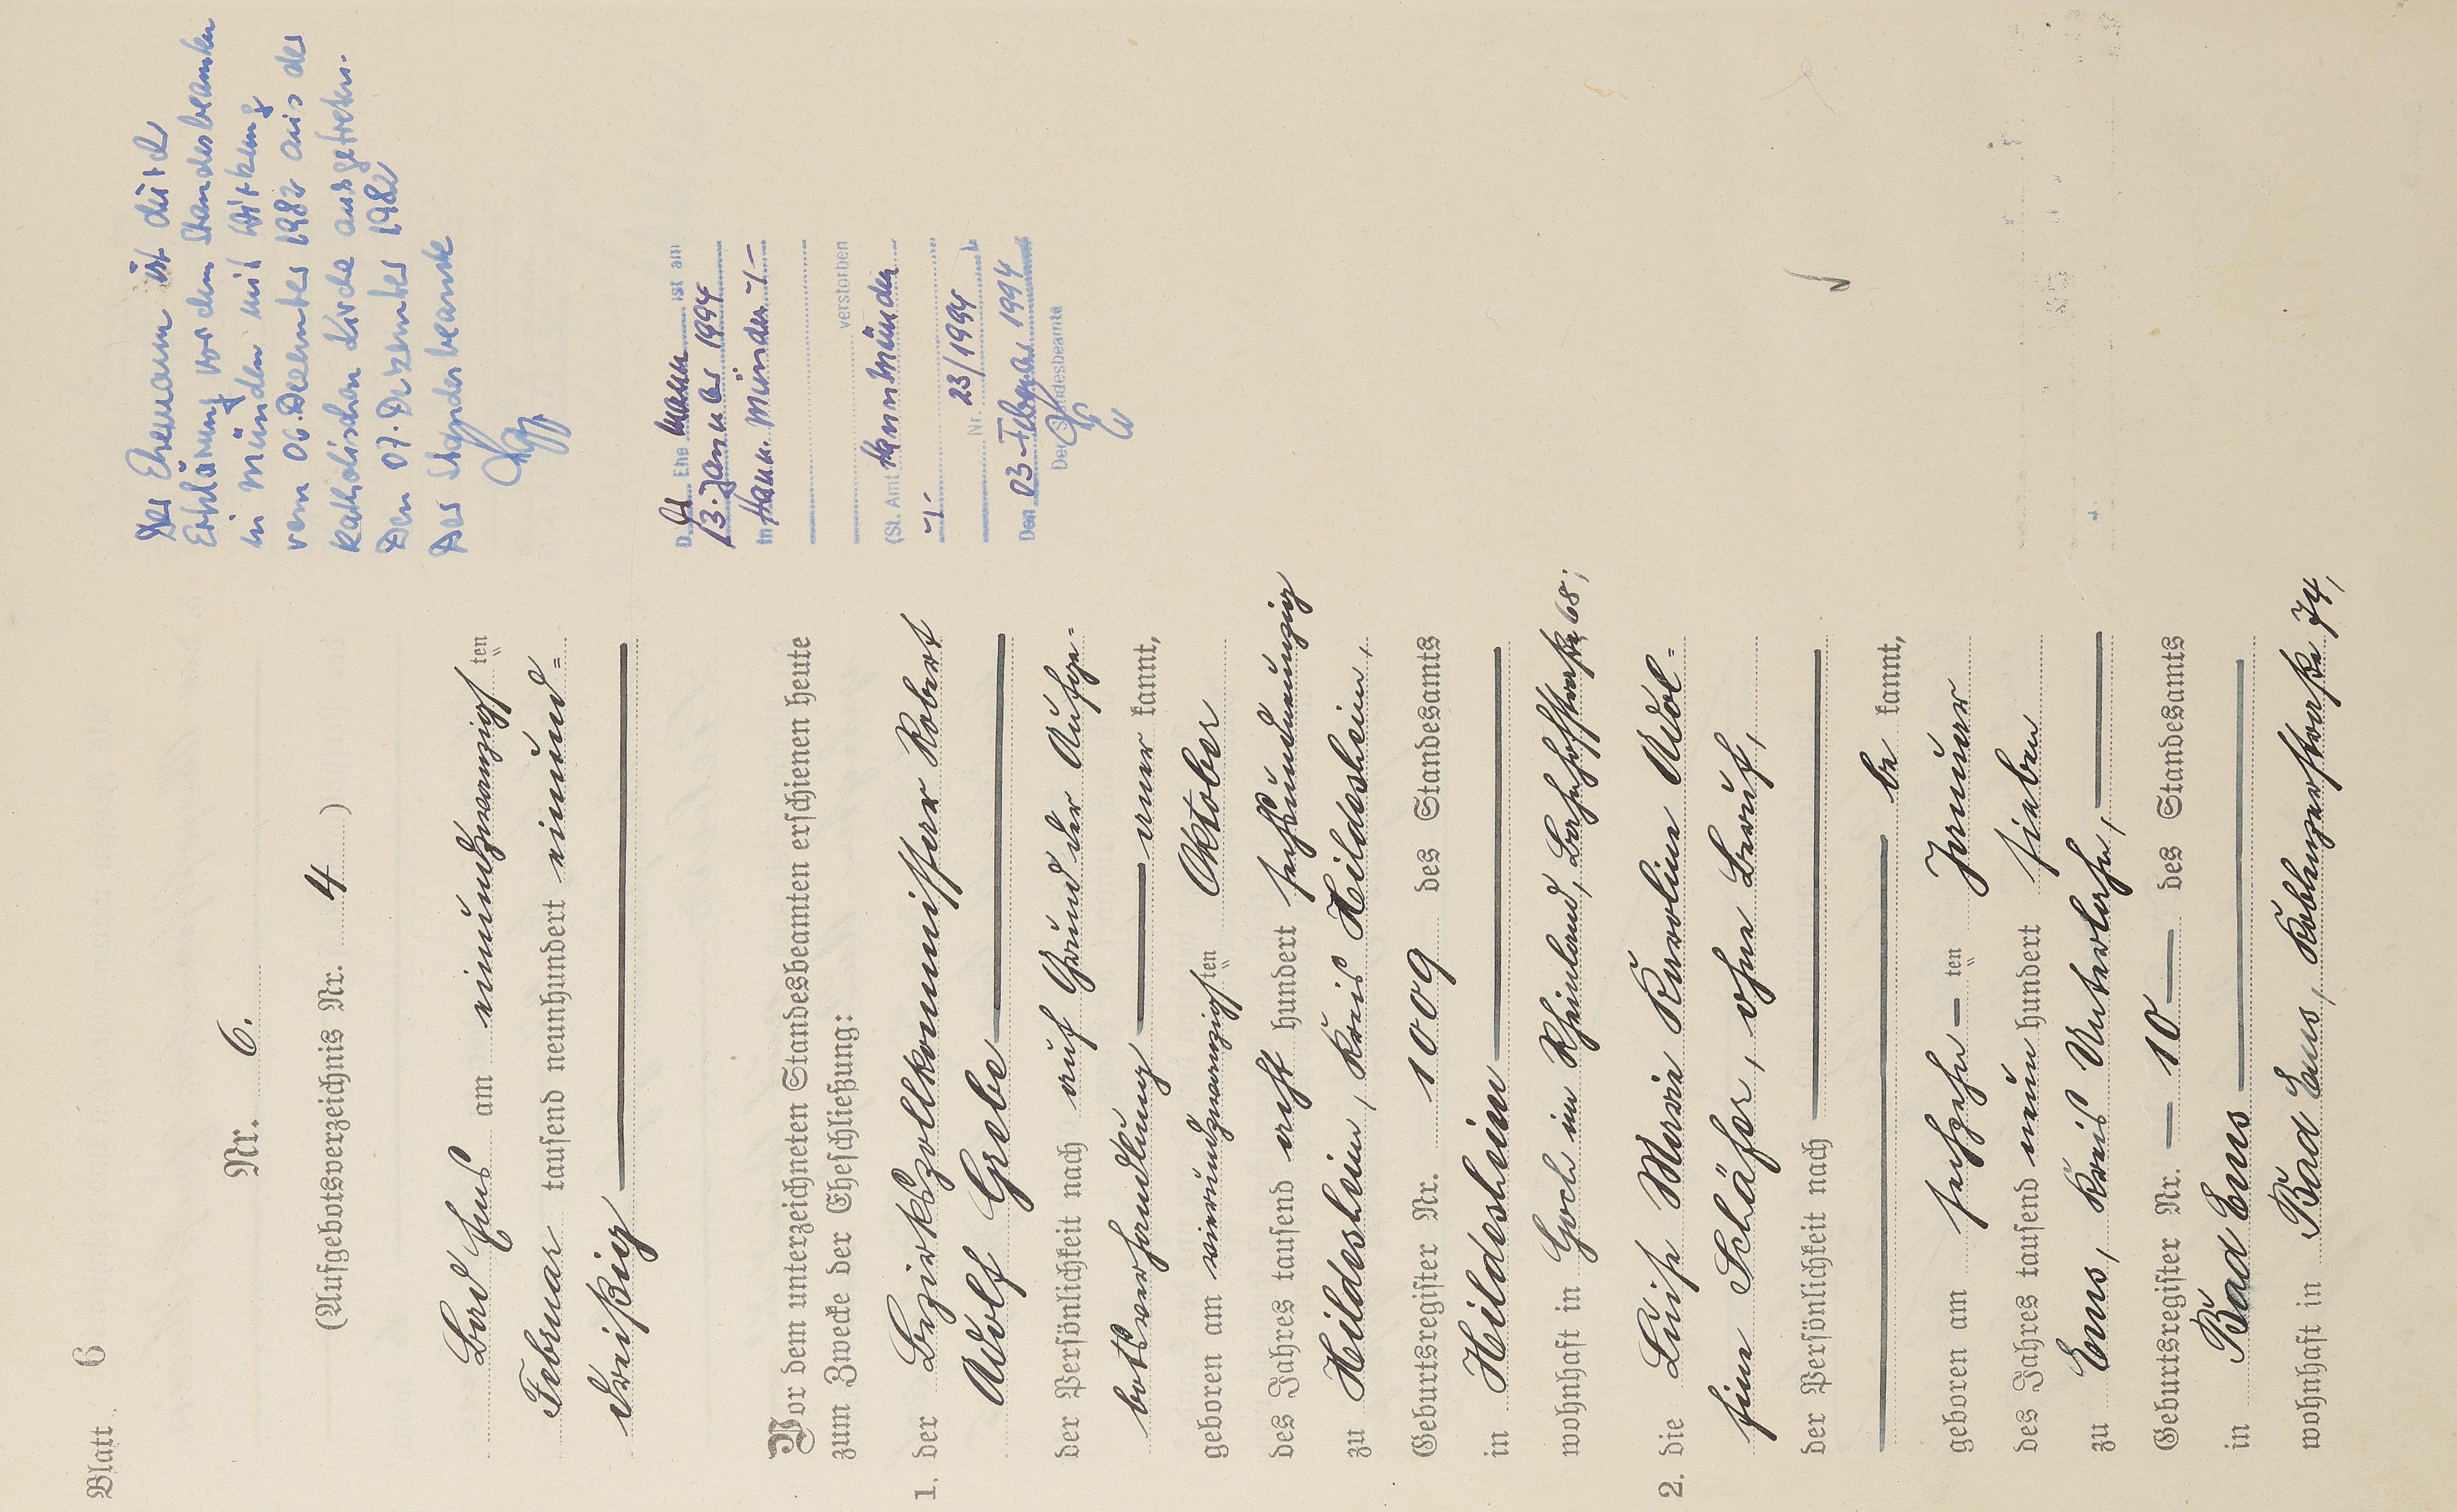 Blatt 6
Nr. 6.
(Aufgebotsverzeichnis Nr. 4)
Bad Ems am einundzwanzigsten
Februar tausend neunhundert einund=
dreißig
Vor dem unterzeichneten Standesbeamten erschienen heute
zum Zwecke der Eheschließung:
1. der Bezirkszollkommissar Robert
Adolf Grebe
der Persönlichkeit nach auf Grund der Aufge=
botsverhandlung aner kannt,
geboren am vierundzwanzigsten Oktober
des Jahres tausend acht hundert sechsundneunzig
zu Hildesheim, Kreis Hildesheim,
Geburtsregister Nr. 1009 des Standesamts
in Hildesheim
wohnhaft in Goch im Rheinland, Bahnhofstraße 68;
2. die Luise Maria Karoline Adol=
fine Schäfer, ohne Beruf,
der Persönlichkeit nach
be kannt,
geboren am sechzehn – ten Januar
des Jahres tausend neun hundert sieben
zu Ems, Kreis Unterlahn,
Geburtsregister Nr. – 10 – des Standesamts
in Bad Ems
wohnhaft in Bad Ems, Koblenzerstraße 74,
Der Ehemann ist durch
Erklärung vor dem Standesbeamten
in Münden mit Wirkung
vom 06. Dezember 1982 aus der
katholischen Kirche ausgetreten.
Den 07. Dezember 1982
Der Standesbeamte
Der Ehe mann ist am
13. Januar 1994
in Hann. Münden -/-
verstorben
(St. Amt Hann. Münden
-/-
Nr. 23/1994
Den 03. Februar 1994
Der Standesbeamte